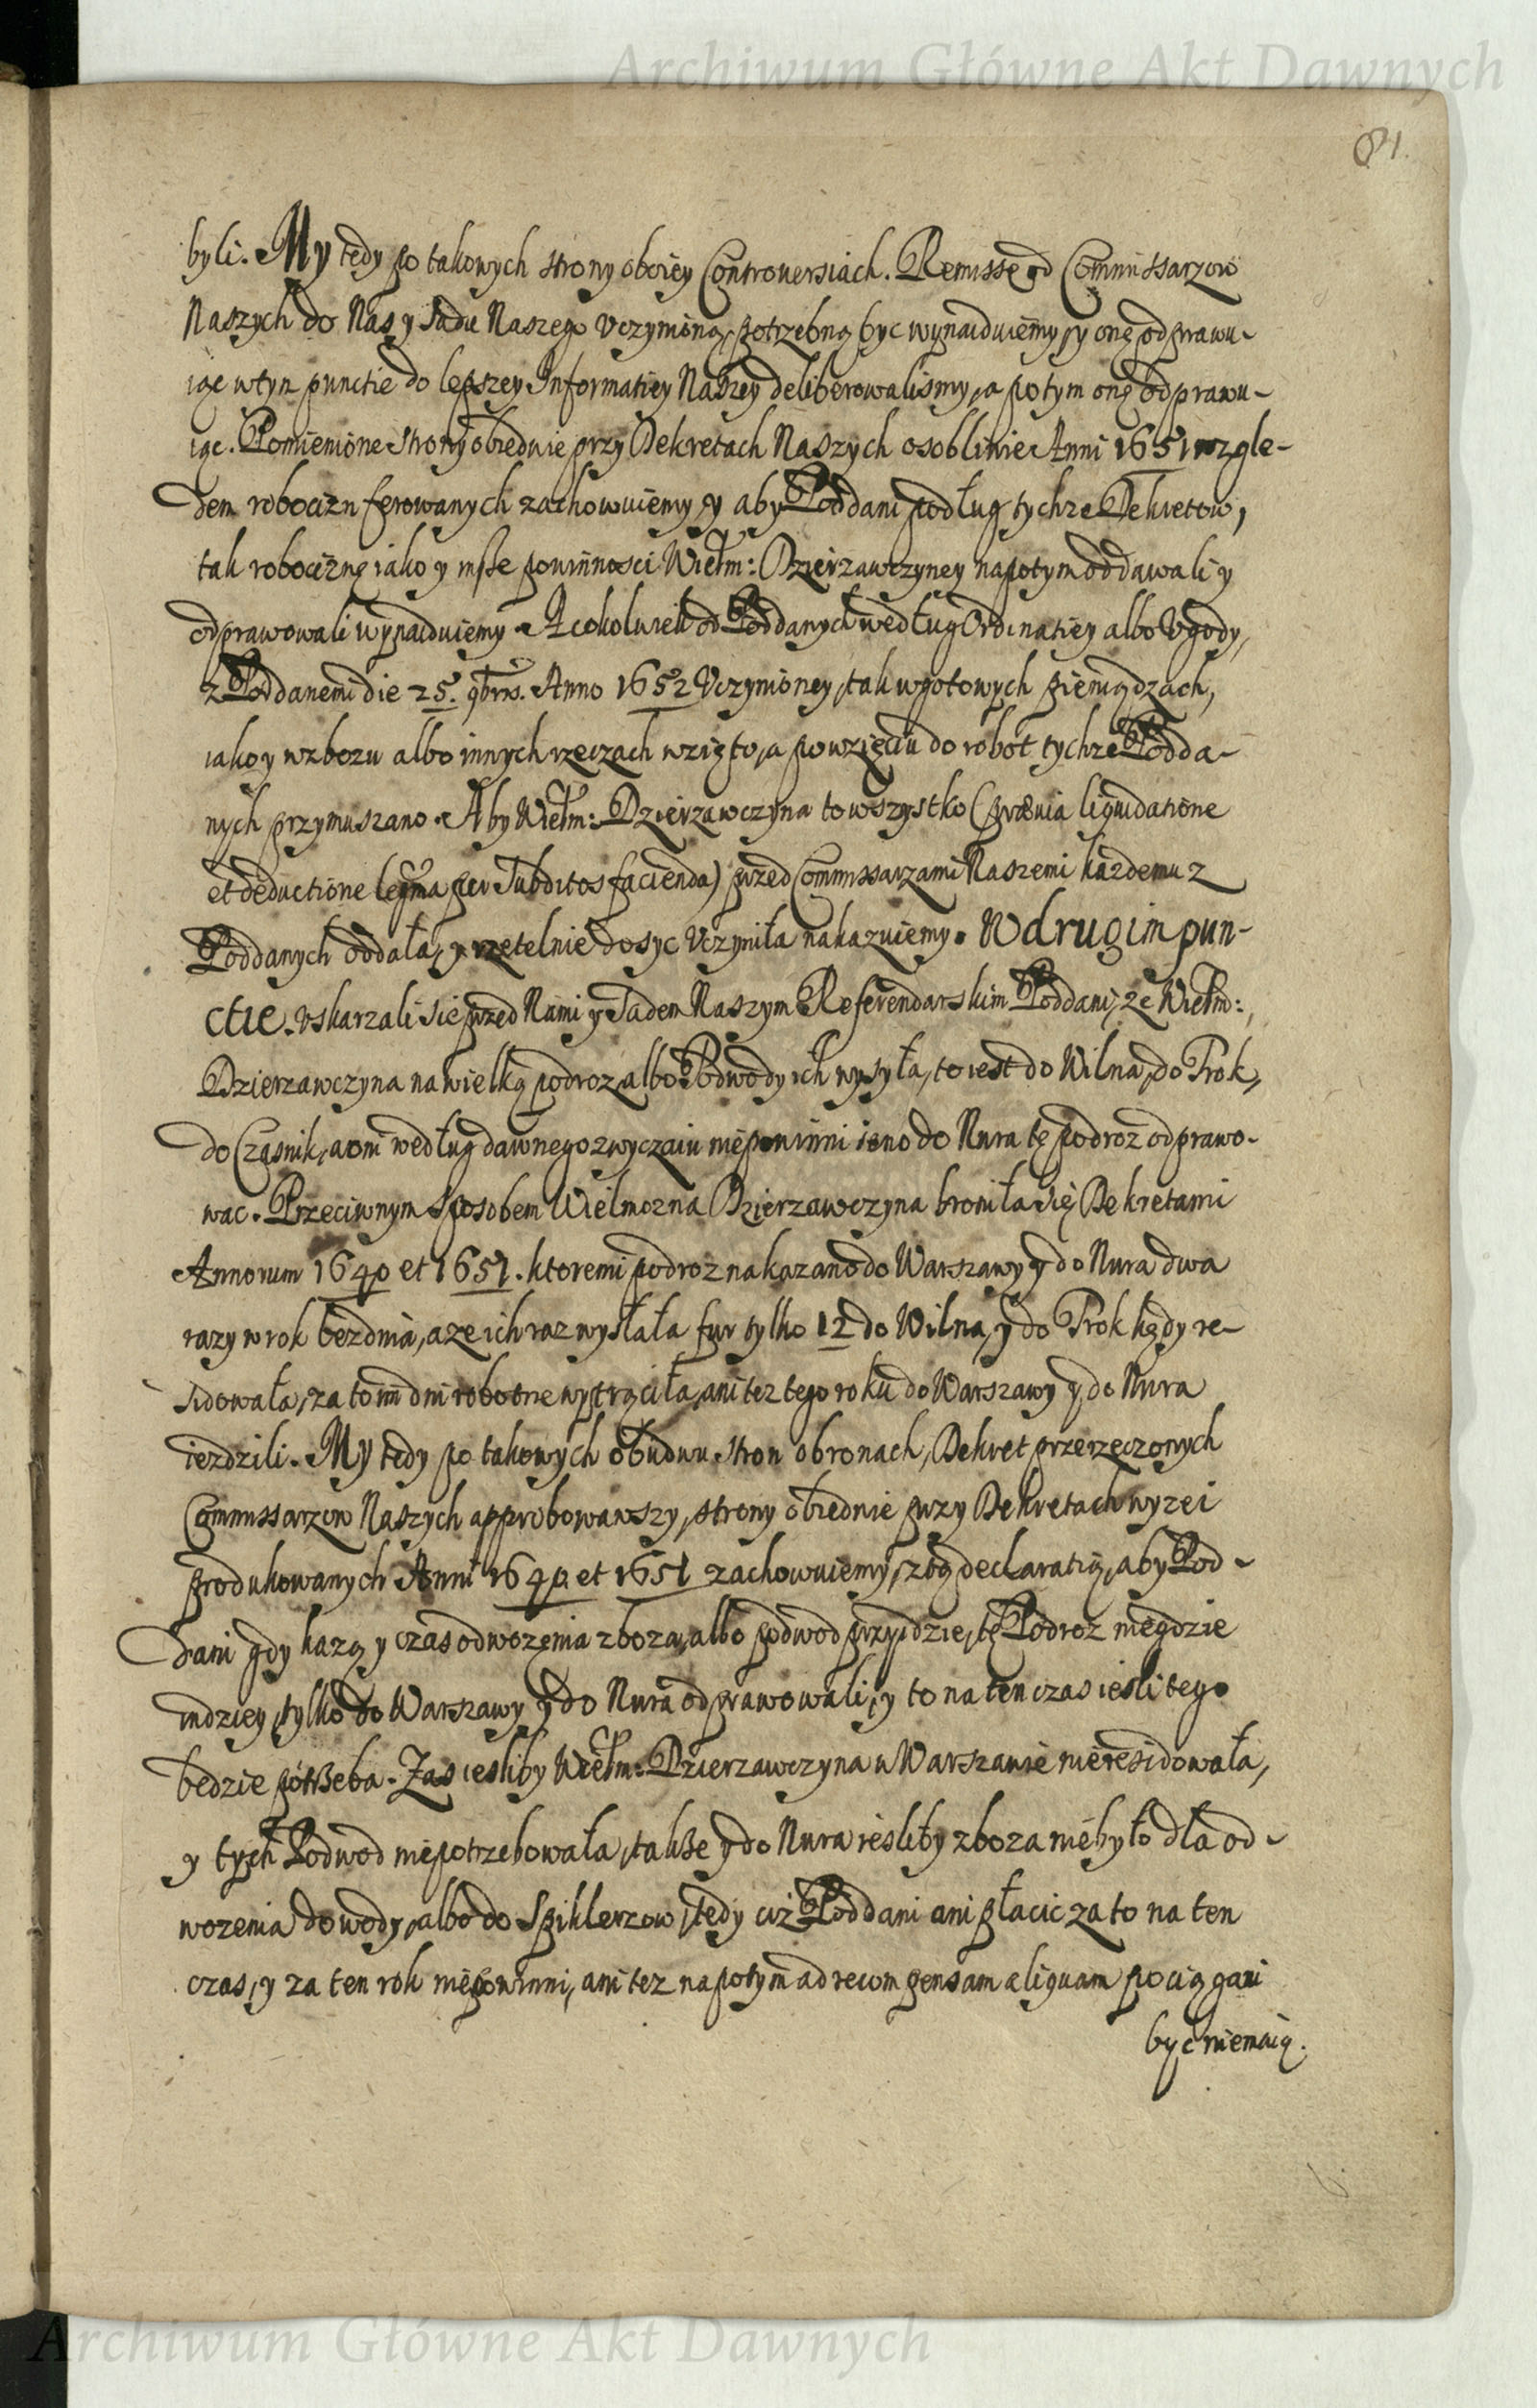 Archiwum Główne Akt Dawnych
81.
byli. My tedy po takowych strony oboiey Controversiach. Remissę od Commissarzow
Naszych do Nas y Sądu Naszego Vczynioną, potrzebną byc wynaiduiemy, y onę odprawu-
iąc wtyn punctie do lepszey Informatiey Naszey deliberowalismy, a potym onę odprawu-
iąc. Pomienione strony obiedwie przy Dekretach Naszych osobliwie Anni 1651 wzglę-
dem robocizn ferowanych zachowuiemy, y aby Poddani podług tychze Dekretow,
tak robociznę iako y insze powinnosci Wielm: Dzierzawczyney napotym oddawali y
odprawowali wynaiduiemy. A cokolwiek od Poddanych według Ordinatiey albo Vgody,
z Poddanemi die 25. 9bris. Anno 1652 Vczynioney, tak wgotowych pieniądzach,
iako y wzbozu albo innych rzeczach wzięto, a powzięciu do robot tychze Podda-
nych przymuszano. Aby Wielm: Dzierzawczyna towszystko (prævia liquidatione
et deductione leg̃ma per Subditos facienda) przed Commissarzami Naszemi kazdemu z
Poddanych oddała, y rzetelnie dosyc Vczyniła nakazuiemy. W drugim pun-
ctie. vskarzali sie przed Nami y Sądem Naszym Referendarskim Poddani, ze Wielm:
Dzierzawczyna na wielką podroz albo Podwody ich wysyła, to iest do Wilna, do Trok,
do Czasnik, a oni według dawnego zwyczaiu niepowinni ieno do Nura tę podroz odprawo-
wac. Przeciwnym sposobem Wielmozna Dzierzawczyna broniła się Dekretami
Annorum 1640 et 1651. ktoremi podroz nakazano do Warszawy y do Nura dwa
razy w rok bezdnia, a ze ich raz wysłała fur tylko 12 do Wilna, y do Trok kędy re-
sidowała, za to im dni robotne wytrąciła, ani tez tego roku do Warszawy y do Nura
iezdzili. My tedy po takowych obudwu stron obronach, Dekret przerzeczonych
Commissarzow Naszych approbowawszy, strony obiedwie przy Dekretach wyzei
produkowanych Anni 1640. et 1651 zachowuiemy, z tą declaratią, aby Pod-
dani gdy każą y czas odwozenia zboza, albo podwod przyidzie, tę Podroz niegdzie
indziey, tylko do Warszawy y do Nura odprawowali, y to na ten czas iesli tego
będzie potrzeba. Zas iesliby Wielm: Dzierzawczyna w Warszawie nieresidowała,
y tych Podwod niepotrzebowała, także y do Nura iesliby zboza niebyło dla od-
wozenia do wody, albo do Spiklerzow, tedy ciż Poddani ani płacic za to na ten
czas, y za ten rok niepowinni, ani tez napotym ad recompensam aliquam pociągani
byc niemaią.
Archiwum Główne Akt Dawnych